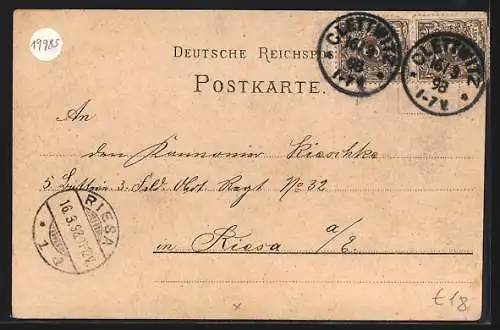 19985
DEUTSCHE REICHSPOST
POSTKARTE.
GLEIWITZ
16/3
98
1-7V.
GLEIWITZ
16/3
98
1-7V.
An
den Kanonier
5. Batterie 3. Feld. Regt No 32
in Riesa a/E.
RIESA
16.3.98
* 1 a
x
€18